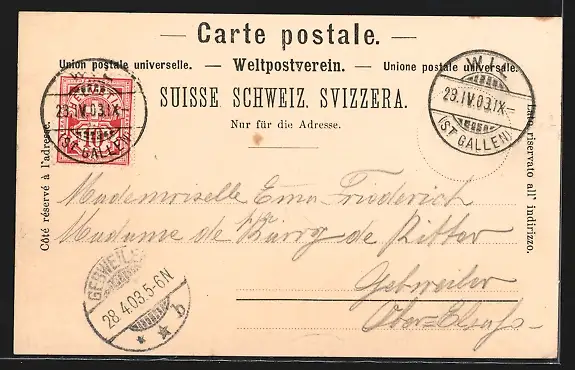 — Carte postale. —
Union postale universelle. — Weltpostverein. — Unione postale universale.
SUISSE. SCHWEIZ. SVIZZERA.
Nur für die Adresse.
Côté réservé à l'adresse.
Lato riservato all' indirizzo.
WIL
23.IV.03.IX–
(ST GALLEN)
10
WIL
23.IV.03.IX–
(ST GALLEN)
Mademoiselle Ema Friederich
Madame de de Ritter
Gebweiler
Ober-Elsass
GEBWEILER
28.4.03.5-6N
* * b